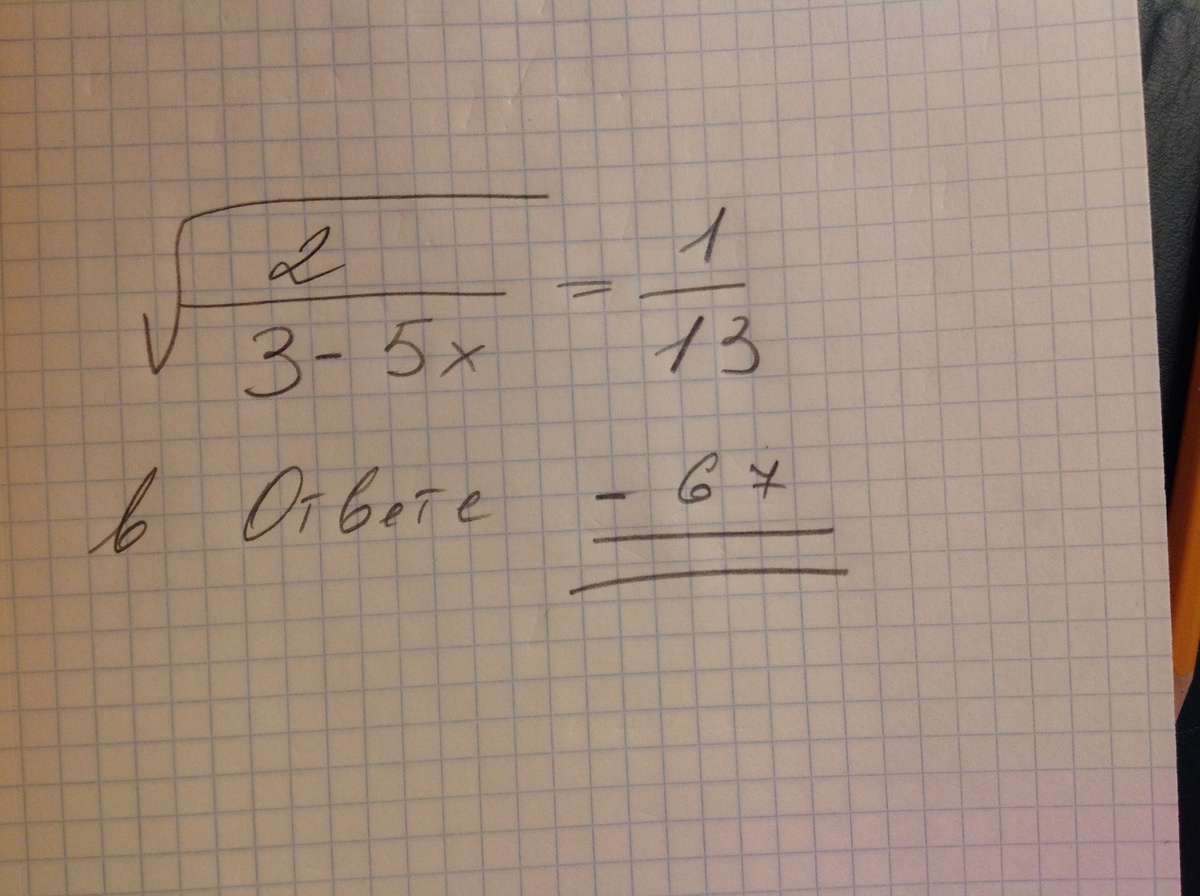 √(2/(3-5x)) = 1/13
в Ответе - 67